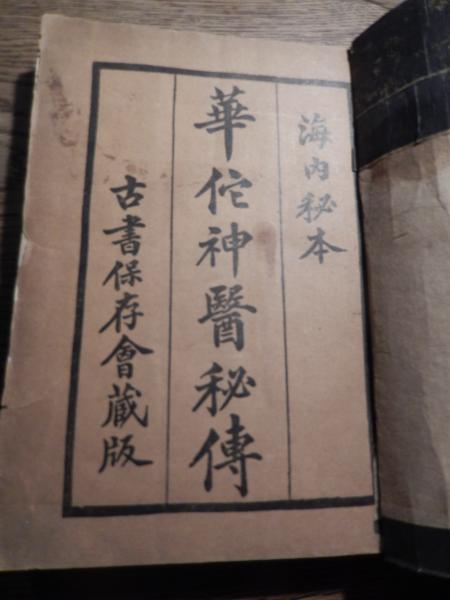 海内秘本
華佗神醫秘傳
古書保存會藏版